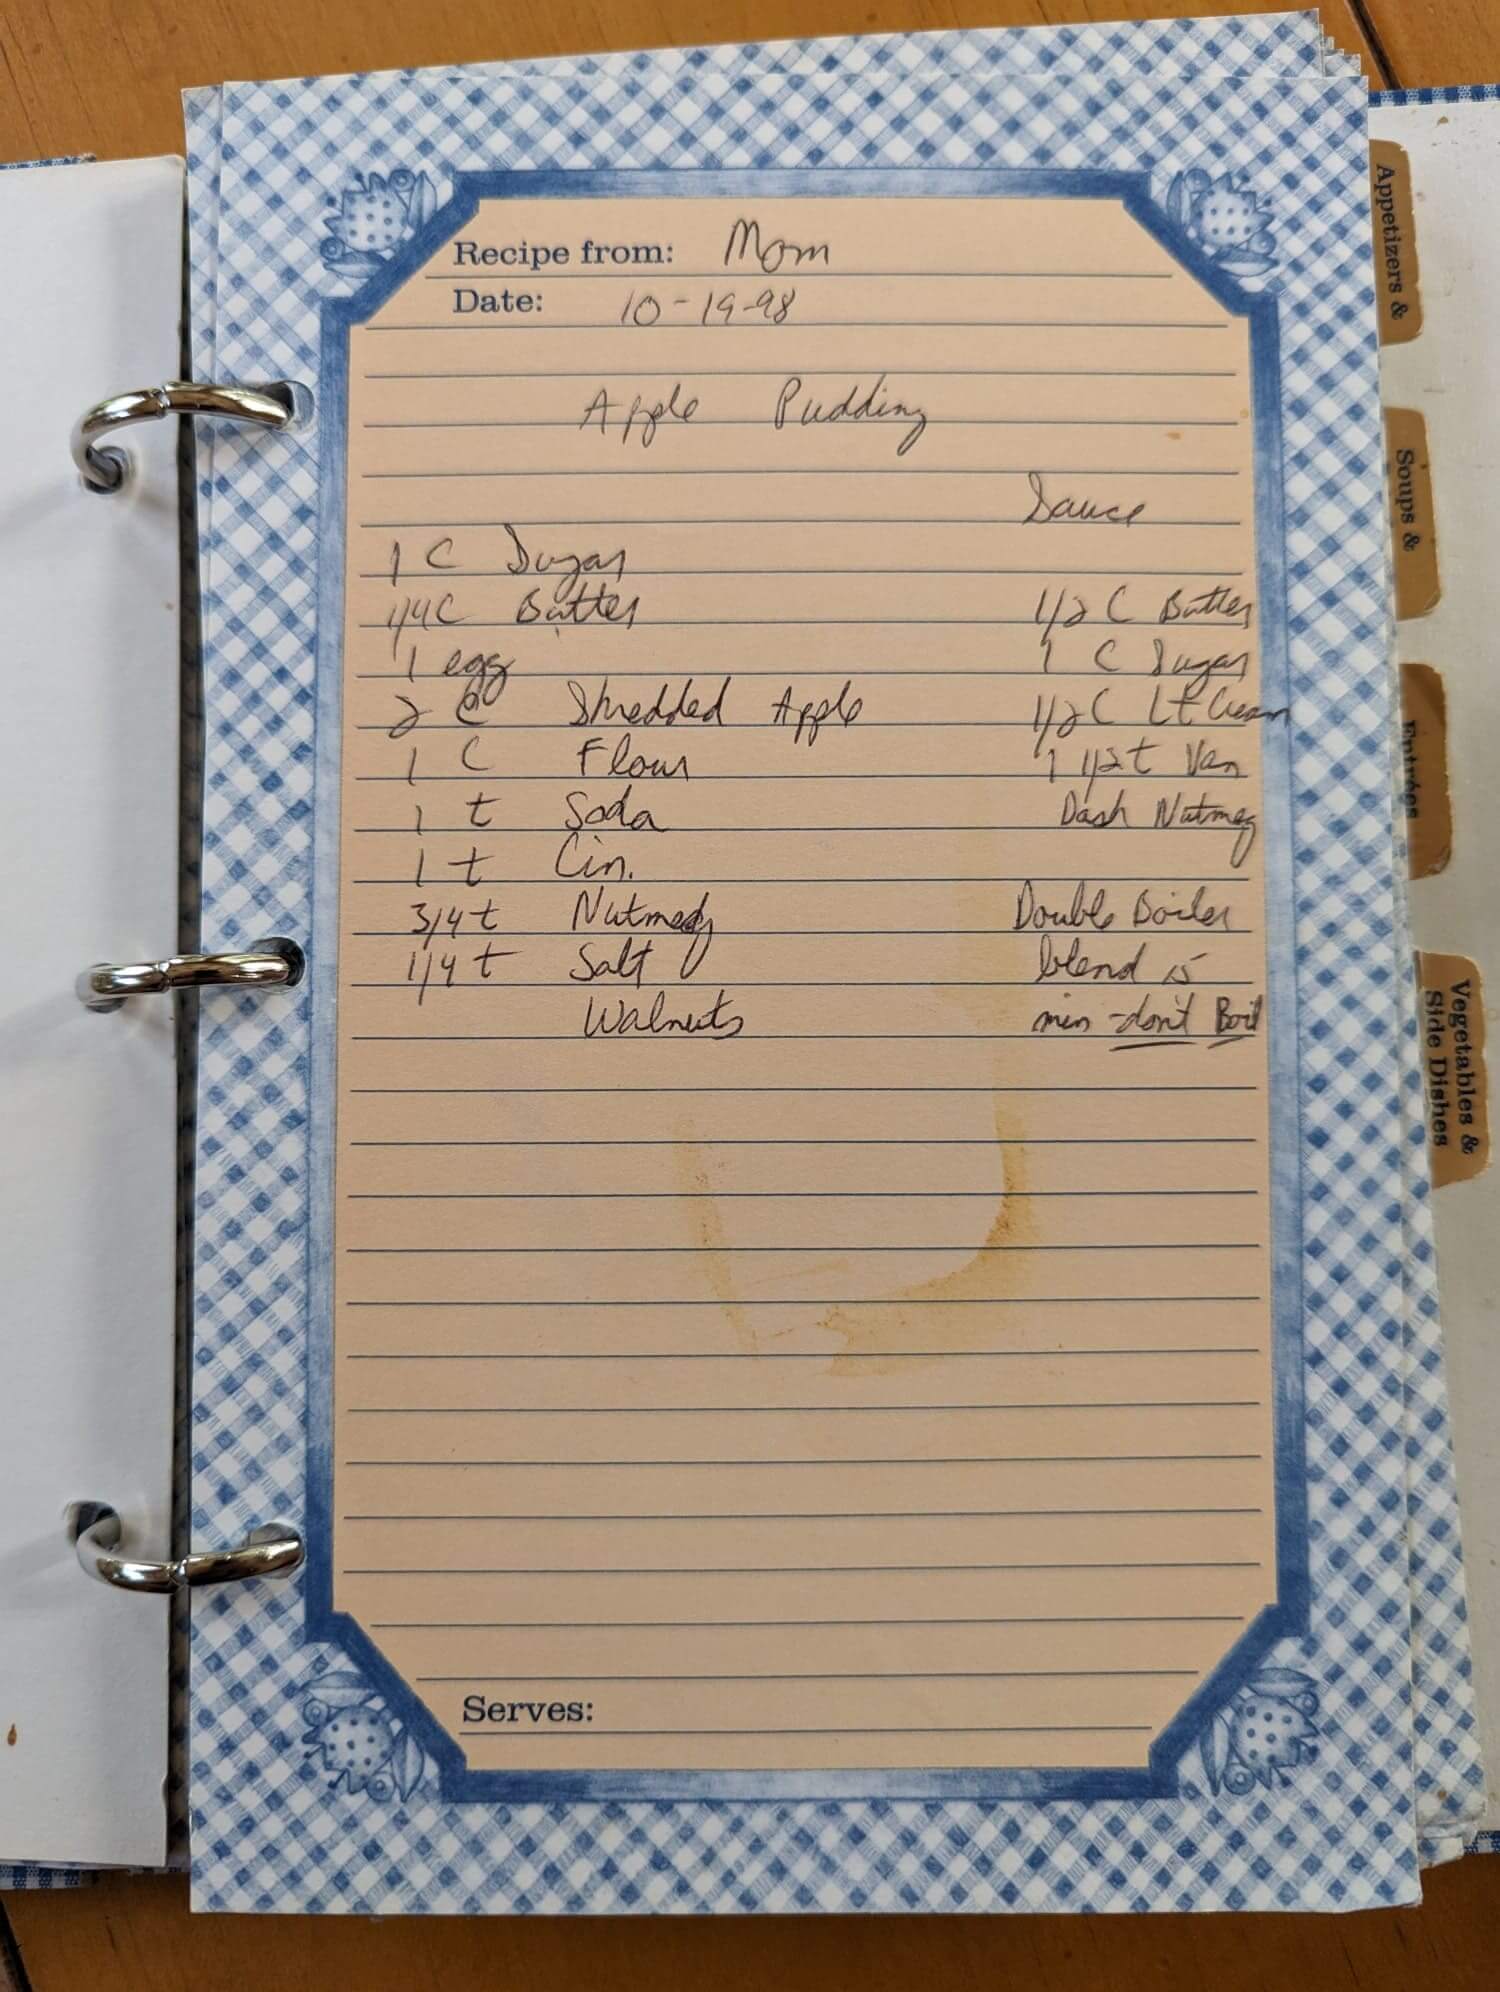 Recipe from: Mom
Date: 10-19-98
Apple Pudding
1 C Sugar
1/4 C Butter
1 egg
2 C Shredded Apple
1 C Flour
1 t Soda
1 t Cin.
3/4 t Nutmeg
1/4 t Salt
Walnuts
Sauce
1/2 C Butter
1 C Sugar
1/2 C Lt Cream
1 1/2 t Van
Dash Nutmeg
Double Boiler
blend 15
min - don't Boil
Serves:
Appetizers &
Soups &
Entrées
Vegetables &
Side Dishes